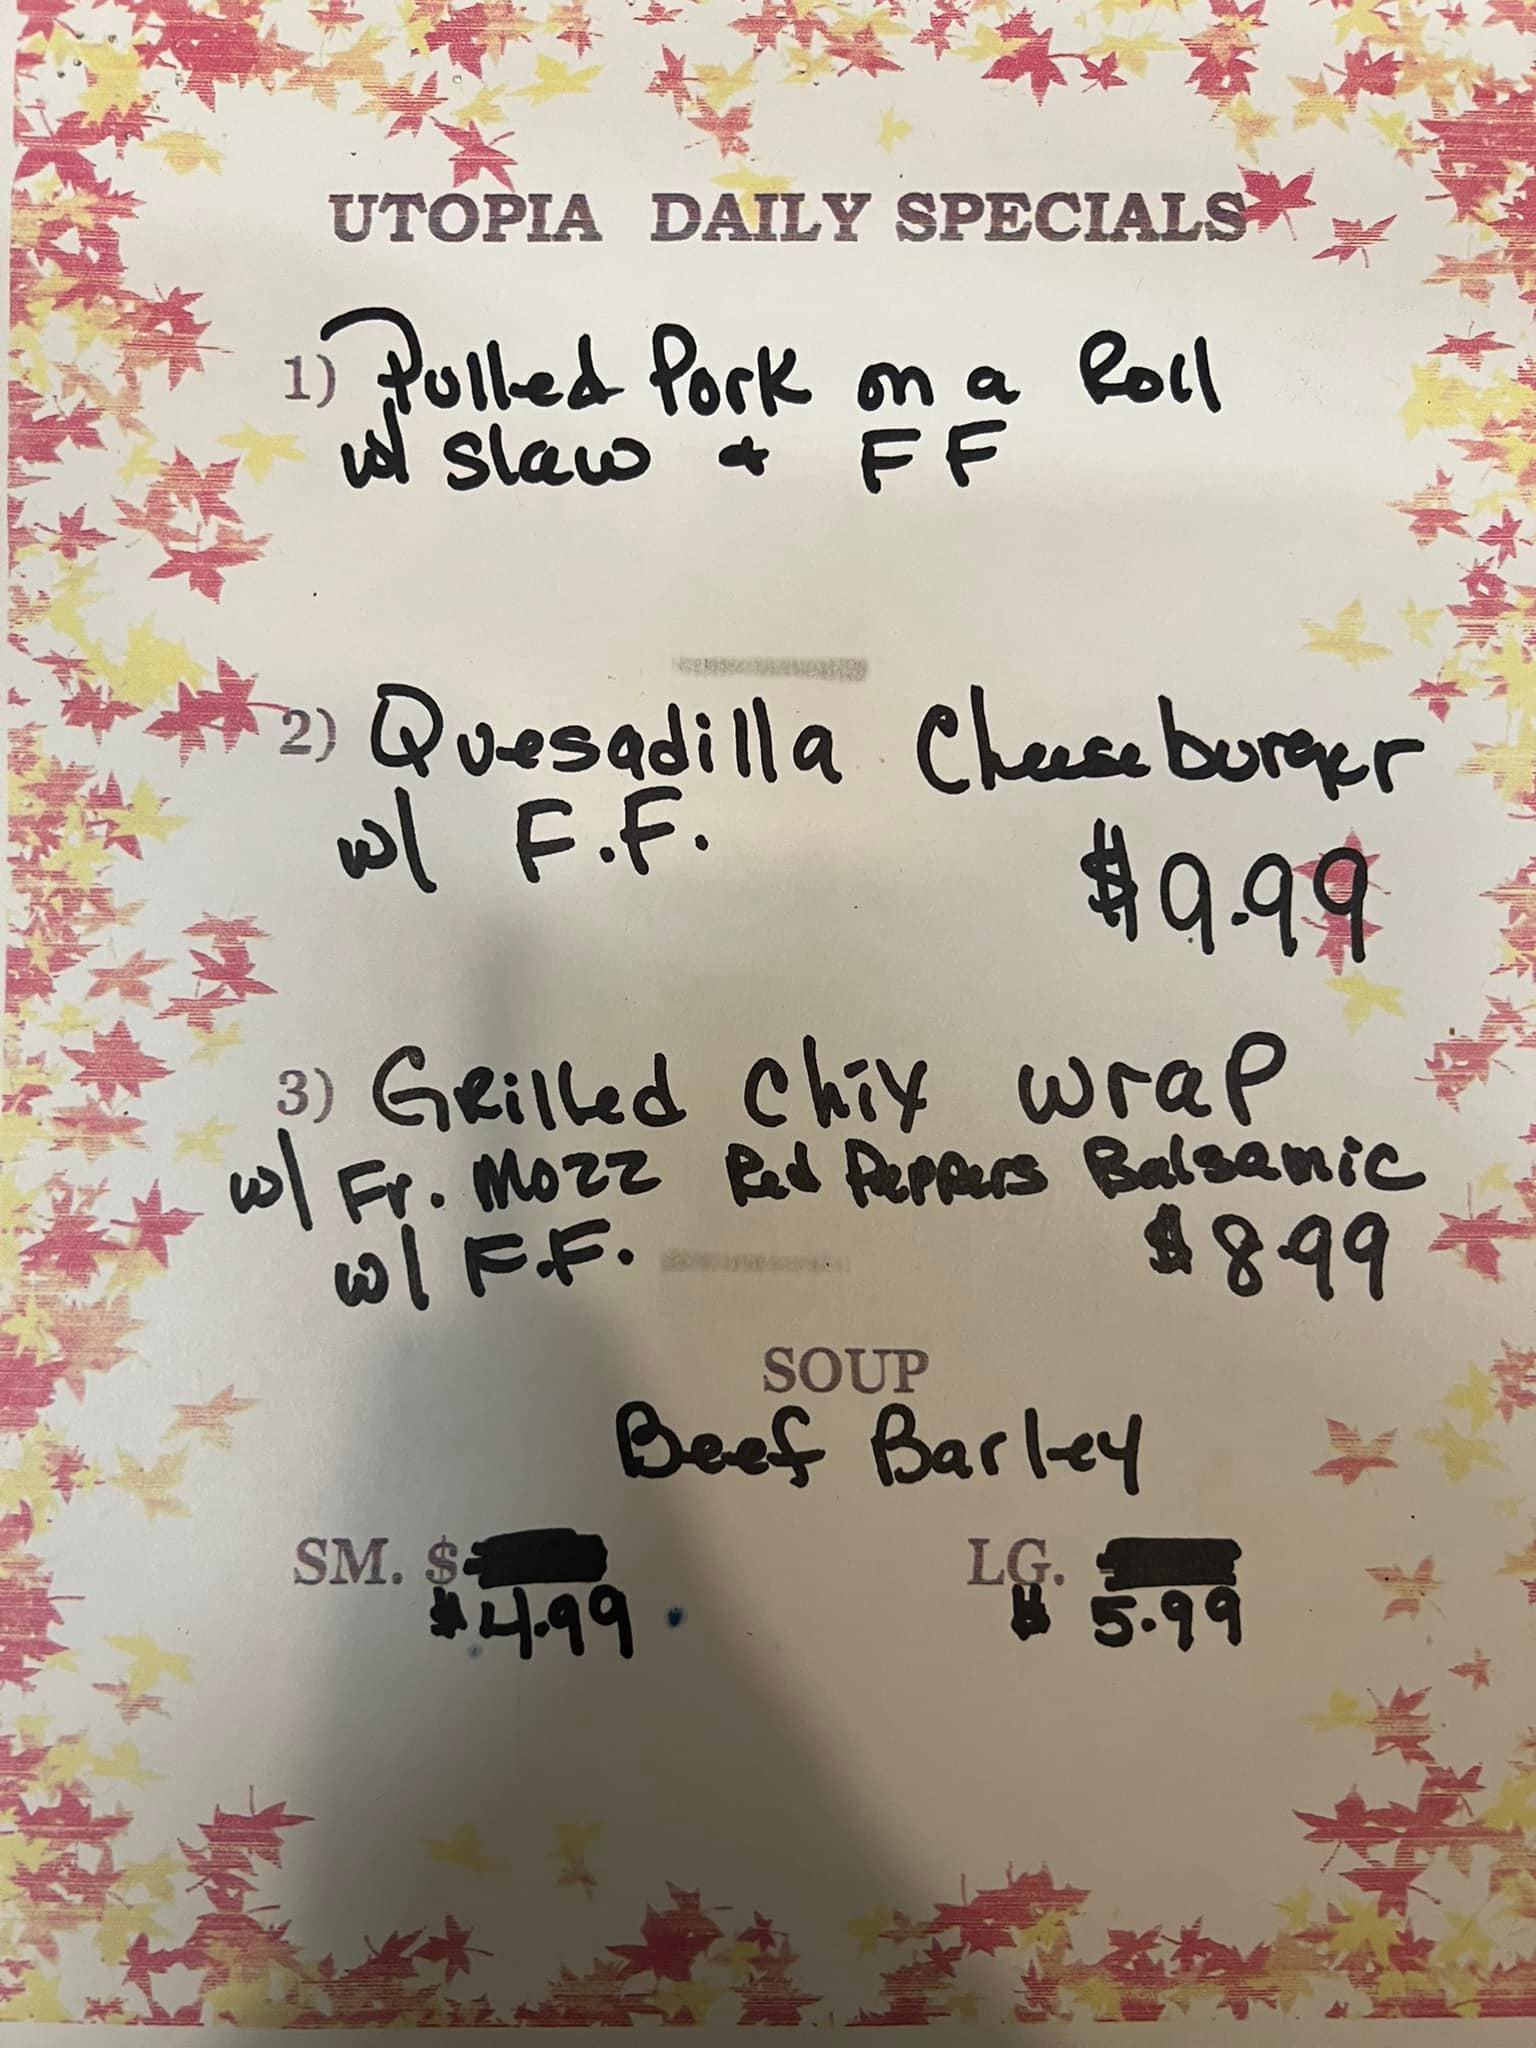 UTOPIA DAILY SPECIALS
1) Pulled Pork on a Roll
w/ slaw & FF
2) Quesadilla Cheeseburger
w/ F.F.
$9.99
3) Grilled Chix Wrap
w/ Fr. Mozz Red Peppers Balsamic
w/ F.F. $8.99
SOUP
Beef Barley
SM. $ LG.
$4.99 $5.99